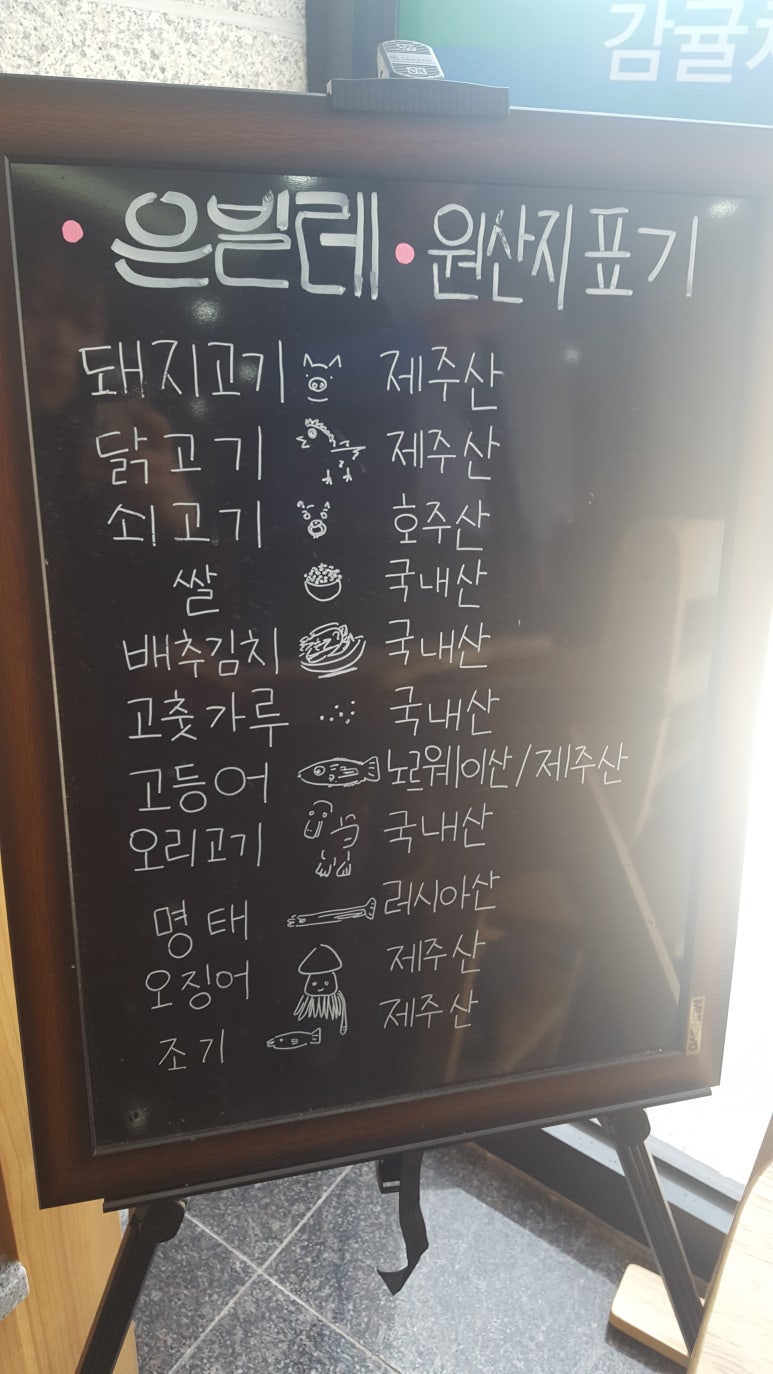 감귤
은빌레 • 원산지 표기
돼지고기 제주산
닭고기 제주산
쇠고기 호주산
쌀 국내산
배추김치 국내산
고춧가루 국내산
고등어 노르웨이산/제주산
오리고기 국내산
명태 러시아산
오징어 제주산
조기 제주산